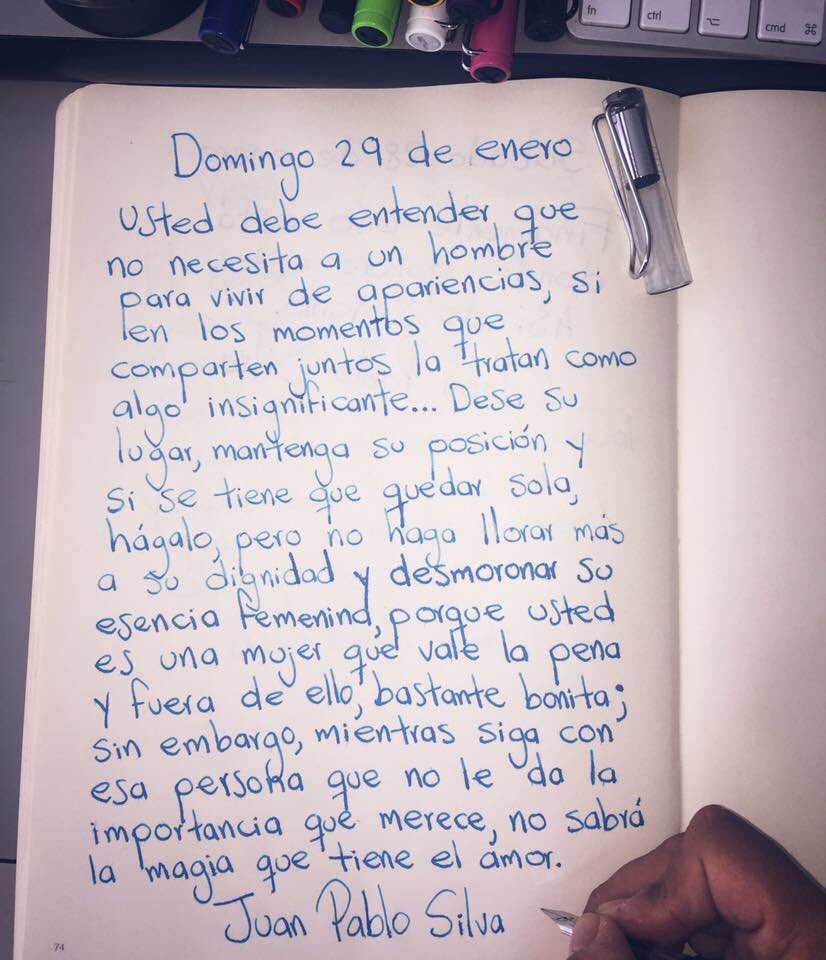 fn
ctrl
⌥
cmd ⌘
Domingo 29 de enero
Usted debe entender que
no necesita a un hombre
para vivir de apariencias, si
en los momentos que
comparten juntos la tratan como
algo insignificante... Dese su
lugar, mantenga su posición y
si se tiene que quedar sola,
hágalo, pero no haga llorar más
a su dignidad y desmoronar su
esencia femenina, porque usted
es una mujer que vale la pena
y fuera de ello, bastante bonita;
sin embargo, mientras siga con
esa persona que no le da la
importancia que merece, no sabrá
la magia que tiene el amor.
Juan Pablo Silva
74